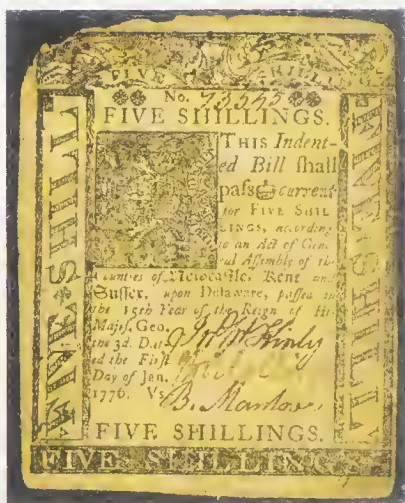 FIVE SHILLINGS
No. 73545
FIVE SHILLINGS.
THIS Indent-
ed Bill ſhall
paſs current
for FIVE SHIL
LINGS, according
to an Act of Gene
ral Aſſembly of the
Counties of Newcaſtle, Kent and
Suſſex, upon Delaware, paſſed in
the 15th Year of the Reign of His
Majeſ. Geo.
the 3d. Dat
ed the Firſt
Day of Jan.
1776. Vs
B. Manlove
FIVE SHILLINGS.
FIVE SHILLINGS
FIVE SHILLIN
FIVE SHILLIN